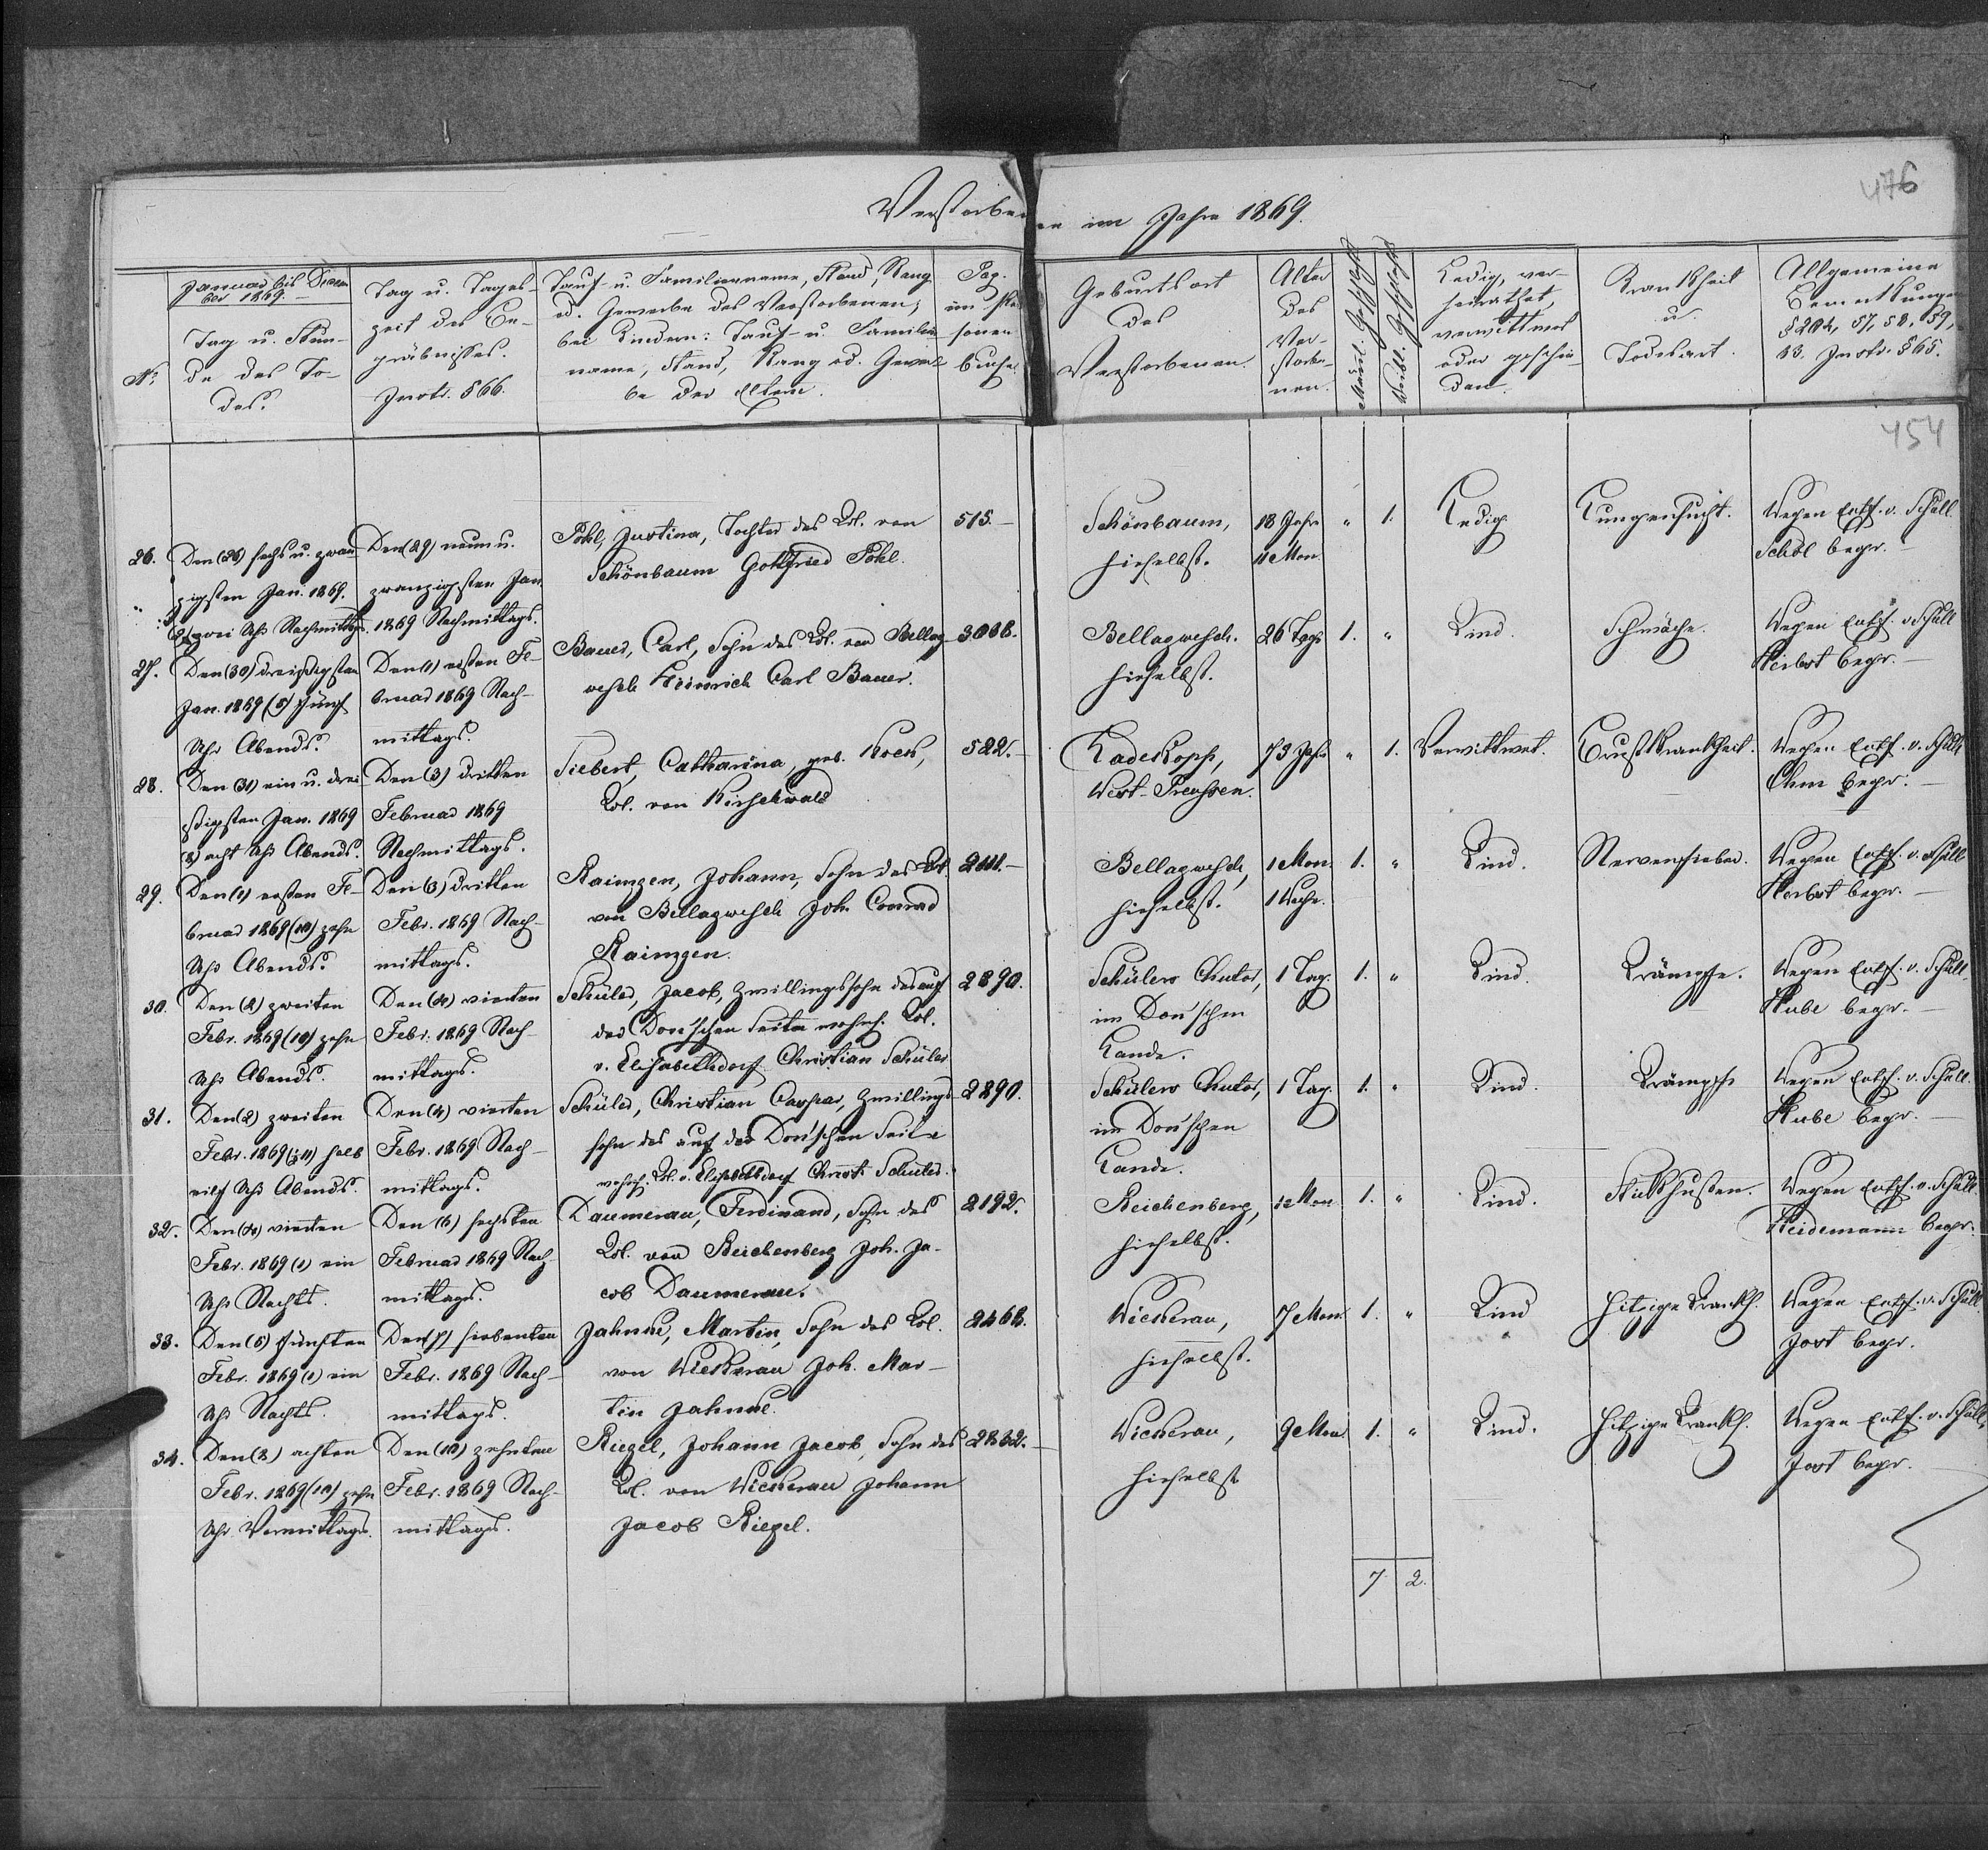 476
Verstorbene im Jahre 1869.
No
Januar bis Decem
ber 1869.
Tag u. Stun-
de des To-
des.
Tag u. Tages-
zeit des Be-
gräbnisses.
Instr. § 66.
Tauf- u. Familienname, Stand, Rang
od. Gewerbe des Verstorbenen;
bei Kindern: Tauf- u. Familien
name, Stand, Rang od. Gewer-
be der Eltern.
Pag.
im Per
sonen
buche
Geburtsort
des
Verstorbenen.
Alter
des
Ver-
storbe-
nen.
Männl. Geschlecht
Weibl. Geschlecht
Ledig, ver-
heirathet,
verwittwet
oder geschie-
den.
Krankheit
u.
Todesart.
Allgemeine
Bemerkungen
§ 284, 57, 58, 59,
63. Instr. § 65.
454
26.
Den (26) sechs u. zwan
zigsten Jan. 1869.
(2) zwei Uhr Nachmittags.
Den (29) neun u.
zwanzigsten Jan.
1869 Nachmittags.
Pohl, Justina, Tochter des Kol. von
Schönbaum Gottfried Pohl.
515.
Schönbaum,
hieselbst.
18 Jahr
11 Mon.
" 1.
Ledig
Lungensucht.
Wegen Entf. v. Schull.
Schol begr.
27.
Den (30) dreißigsten
Jan. 1869 (5) fünf
Uhr Abends.
Den (1) ersten Fe-
bruar 1869 Nach-
mittags.
Bauer, Carl, Sohn des Kol. von Bellag-
wesch Heinrich Carl Bauer.
3008.
Bellagwesch.
hieselbst.
26 Tage
1. "
Kind.
Schwäche.
Wegen Entf. v. Schull
Herbst begr.
28.
Den (31) ein u. drei
ßigsten Jan. 1869
(8) acht Uhr Abends.
Den (3) dritten
Februar 1869
Nachmittags.
Siebert, Catharina, geb. Koch,
Kol. von Kirschwald
522.
Ladekopp,
West-Preußen.
73 Jahr
" 1.
Verwittwet.
Brustkrankheit.
Wegen Entf. v. Schull
Ohm begr.
29.
Den (1) ersten Fe-
bruar 1869 (10) zehn
Uhr Abends.
Den (3) dritten
Febr. 1869 Nach-
mittags.
Raimgen, Johann, Sohn des Kol.
von Bellagwesch Joh. Conrad
Raimgen.
Bellagwesch,
hieselbst.
1 Mon.
1 Woche.
1. "
Kind.
Nervenfieber.
Wegen Entf. v. Schull
Herbst begr.
30.
Den (2) zweiten
Febr. 1869 (10) zehn
Uhr Abends.
Den (4) vierten
Febr. 1869 Nach-
mittags.
Schüler, Jacob, Zwillingssohn des auf
der Don'schen Seite wohnh. Kol.
v. Elisabethdorf Christian Schüler
2890.
Schülers Chutor,
im Don'schen
Lande.
1 Tag.
1. "
Kind.
Krämpfe.
Wegen Entf. v. Schull.
Hube begr.
31.
Den (2) zweiten
Febr. 1869 (½11) halb
eilf Uhr Abends.
Den (4) vierten
Febr. 1869 Nach-
mittags.
Schüler, Christian Caspar, Zwillings-
sohn des auf der Don'schen Seite
wohnh. Kol. v. Elisabethdorf Christ. Schüler.
2890.
Schülers Chutor,
im Don'schen
Lande.
1 Tag.
1. "
Kind.
Krämpfe
Wegen Entf. v. Schull.
Hube begr.
32.
Den (4) vierten
Febr. 1869 (1) ein
Uhr Nachts.
Den (6) sechsten
Februar 1869 Nach-
mittags.
Daumerau, Ferdinand, Sohn des
Kol. von Reichenberg Joh. Ja-
cob Daumerau.
2192.
Reichenberg,
hieselbst.
1. "
Kind.
Stickhusten.
Wegen Entf. v. Schull.
Heidemann begr.
33.
Den (5) fünften
Febr. 1869 (1) ein
Uhr Nachts.
Den (7) siebenten
Febr. 1869 Nach-
mittags.
Jahnke, Martin, Sohn des Kol.
von Wickerau Joh. Mar-
tin Jahnke.
2468.
Wickerau,
hieselbst.
7 Mon.
1. "
Kind
Hitzige Krankh.
Wegen Entf. v. Schull.
Jost begr.
34.
Den (8) achten
Febr. 1869 (10) zehn
Uhr Vormittags.
Den (10) zehnten
Febr. 1869 Nach-
mittags.
Riegel, Johann Jacob, Sohn des
Kol. von Wickerau Johann
Jacob Riegel.
2832.
Wickerau,
hieselbst
9 Mon
1. "
Kind.
Hitzige Krankh.
Wegen Entf. v. Schull.
Jost begr.
7 2.